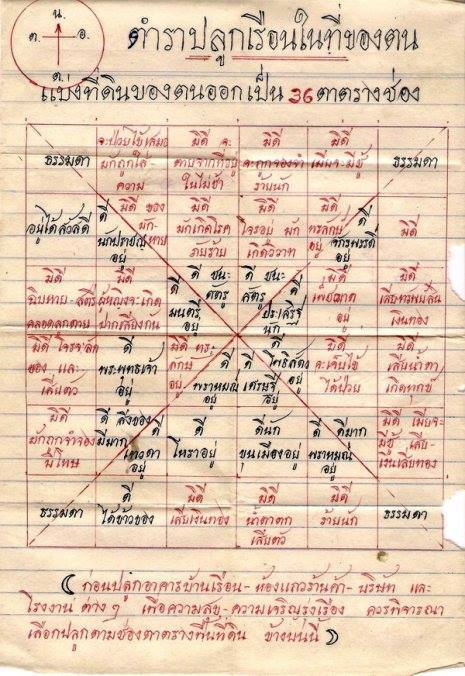 น.
ต. อ.
ต.
ตำราปลูกเรือนในที่ของตน
แบ่งที่ดินของตนออกเป็น 36 ตาตรางช่อง
ธรรมดา
จะป่วยไข้เสมอ
มักถูกใส่
ความ
มิดี จะ
ตายจากที่อยู่
ในไม่ช้า
มิดี
จะถูกจองจำ
ร้ายนัก
มิดี
เมียจะมีชู้
ธรรมดา
อยู่ได้สวัสดี
มิดี ของ
มักหาย
ดี
นักปราชญ์
อยู่
มิดี
มักเกิดโรค
ภัยร้าย
มิดี
โจรอยู่ มัก
เกิดวิวาท
มิดี
อยู่
ดี
จักรพรรดิ์
อยู่
มิดี
มิดี
ฉิบหาย-สตรี
คลอดลูกตาย
มิดี
ผู้หญิงจะเกิด
ปากเสียงกัน
ดี ชนะ
ศัตรู
ดี
มนตรี
อยู่
ดี ชนะ
ศัตรู
ดี
ประเสริฐ
นัก
มิดี
เพชฌฆาต
อยู่
มิดี
เสียทรัพย์สิน
เงินทอง
มิดี โจรจะลัก
ของ และ
เสียตัว
ดี
พระพุทธเจ้า
อยู่
มิดี
อยู่
ดี
พราหมณ์
อยู่
ดี
โพธิสัตว์
อยู่
ดี
เศรษฐี
อยู่
มิดี
จะเจ็บไข้
ได้ป่วย
มิดี
เสียน้ำตา
เกิดทุกข์
มิดี
มักถูกจำจอง
มีโทษ
ดี สิ่งของ
มีมาก
ดี
เทวดา
อยู่
ดี
โหราอยู่
ดีนัก
ขุนเมืองอยู่
ดีมาก
ดี
พราหมณ์
อยู่
มิดี เมียจะ
มีชู้ เสีย
เงินเสียทอง
ธรรมดา
ดี
ได้ข้าวของ
มิดี
เสียเงินทอง
มิดี
น้ำตาตก
เสียตัว
มิดี
ร้ายนัก
ธรรมดา
( ก่อนปลูกอาคารบ้านเรือน-ห้องแถวร้านค้า-บริษัท และ
โรงงาน ต่างๆ เพื่อความสุข-ความเจริญรุ่งเรือง ควรพิจารณา
เลือกปลูกตามช่องตาตรางพื้นที่ดิน ข้างบนนี้ )